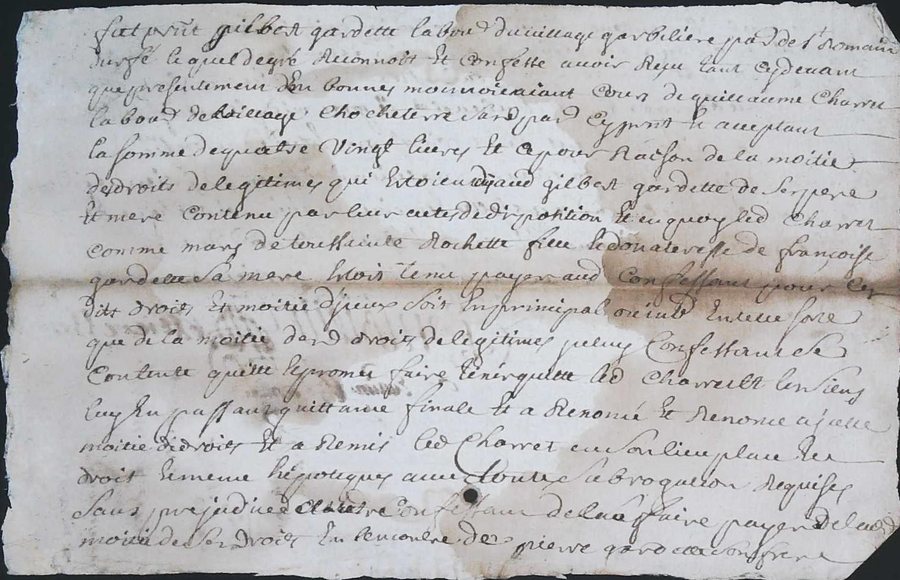 fut pnt gilbert gardette labour du village garbiliere par de st Romain
durfé lequel de gré Reconnoit Et Confesse avoir Reçu tant cydevant
que presentement En bonnes monnoie aiant Cours de guillaume Charret
labour de village Chocheterre par Cy pnt Et acceptant
la somme de quatre Vingt livres Et Ce pour Raison de la moitie
de droits de legitimes qui Estoient gilbert gardette de Ses pere
Et mere Contenu par leur actes de disposition Et en quoy led Charret
comme mary de toussainte Rochette fille de francoise
gardette Sa mere Estoit tenu payer aud Confessant pour les
dits droits Et moitié d'yceux Soit En principal En telle Sorte
que de la moitié dard droits de legitimes Confessant Se
Contente quitte Et promet faire tenir quitte led Charret Et les siens
luy En passant quittance finale Et a Renoncé Et Renonce a jcelle
moitie de droits Et a Remis led Charret en Son lieu place Et
droit Et meme hipoteques avec toutes Sabrogation Requises
Sans prejudice Confessant de Se faire payer de lad
moitié de Ses Droits En Rencontre de pierre gardette Son frere